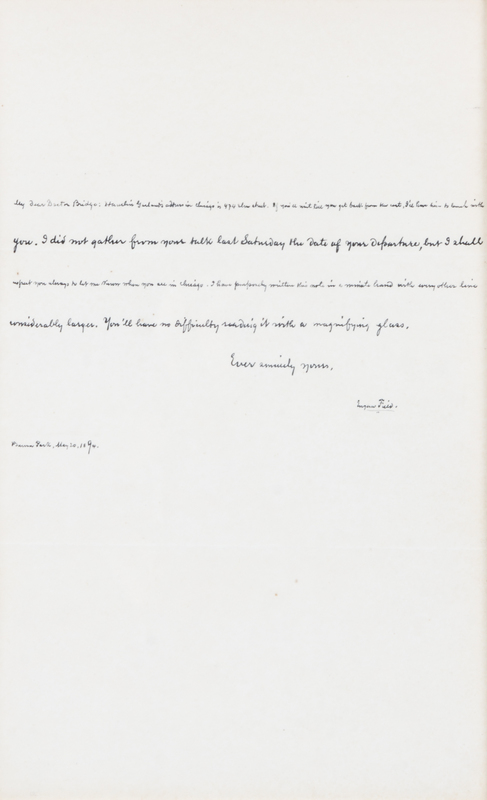 My Dear Doctor Bridge: Hamlin Garland's address in Chicago is 474 Elm street. If you'll wait till you get back from the east, I'll have him to lunch with
you. I did not gather from your talk last Saturday the date of your departure, but I shall
expect you always to let me know when you are in Chicago. I have purposely written this note in a minute hand with every other line
considerably larger. You'll have no difficulty reading it with a magnifying glass.
Ever sincerely yours,
Eugene Field.
Buena Park, May 20, 189